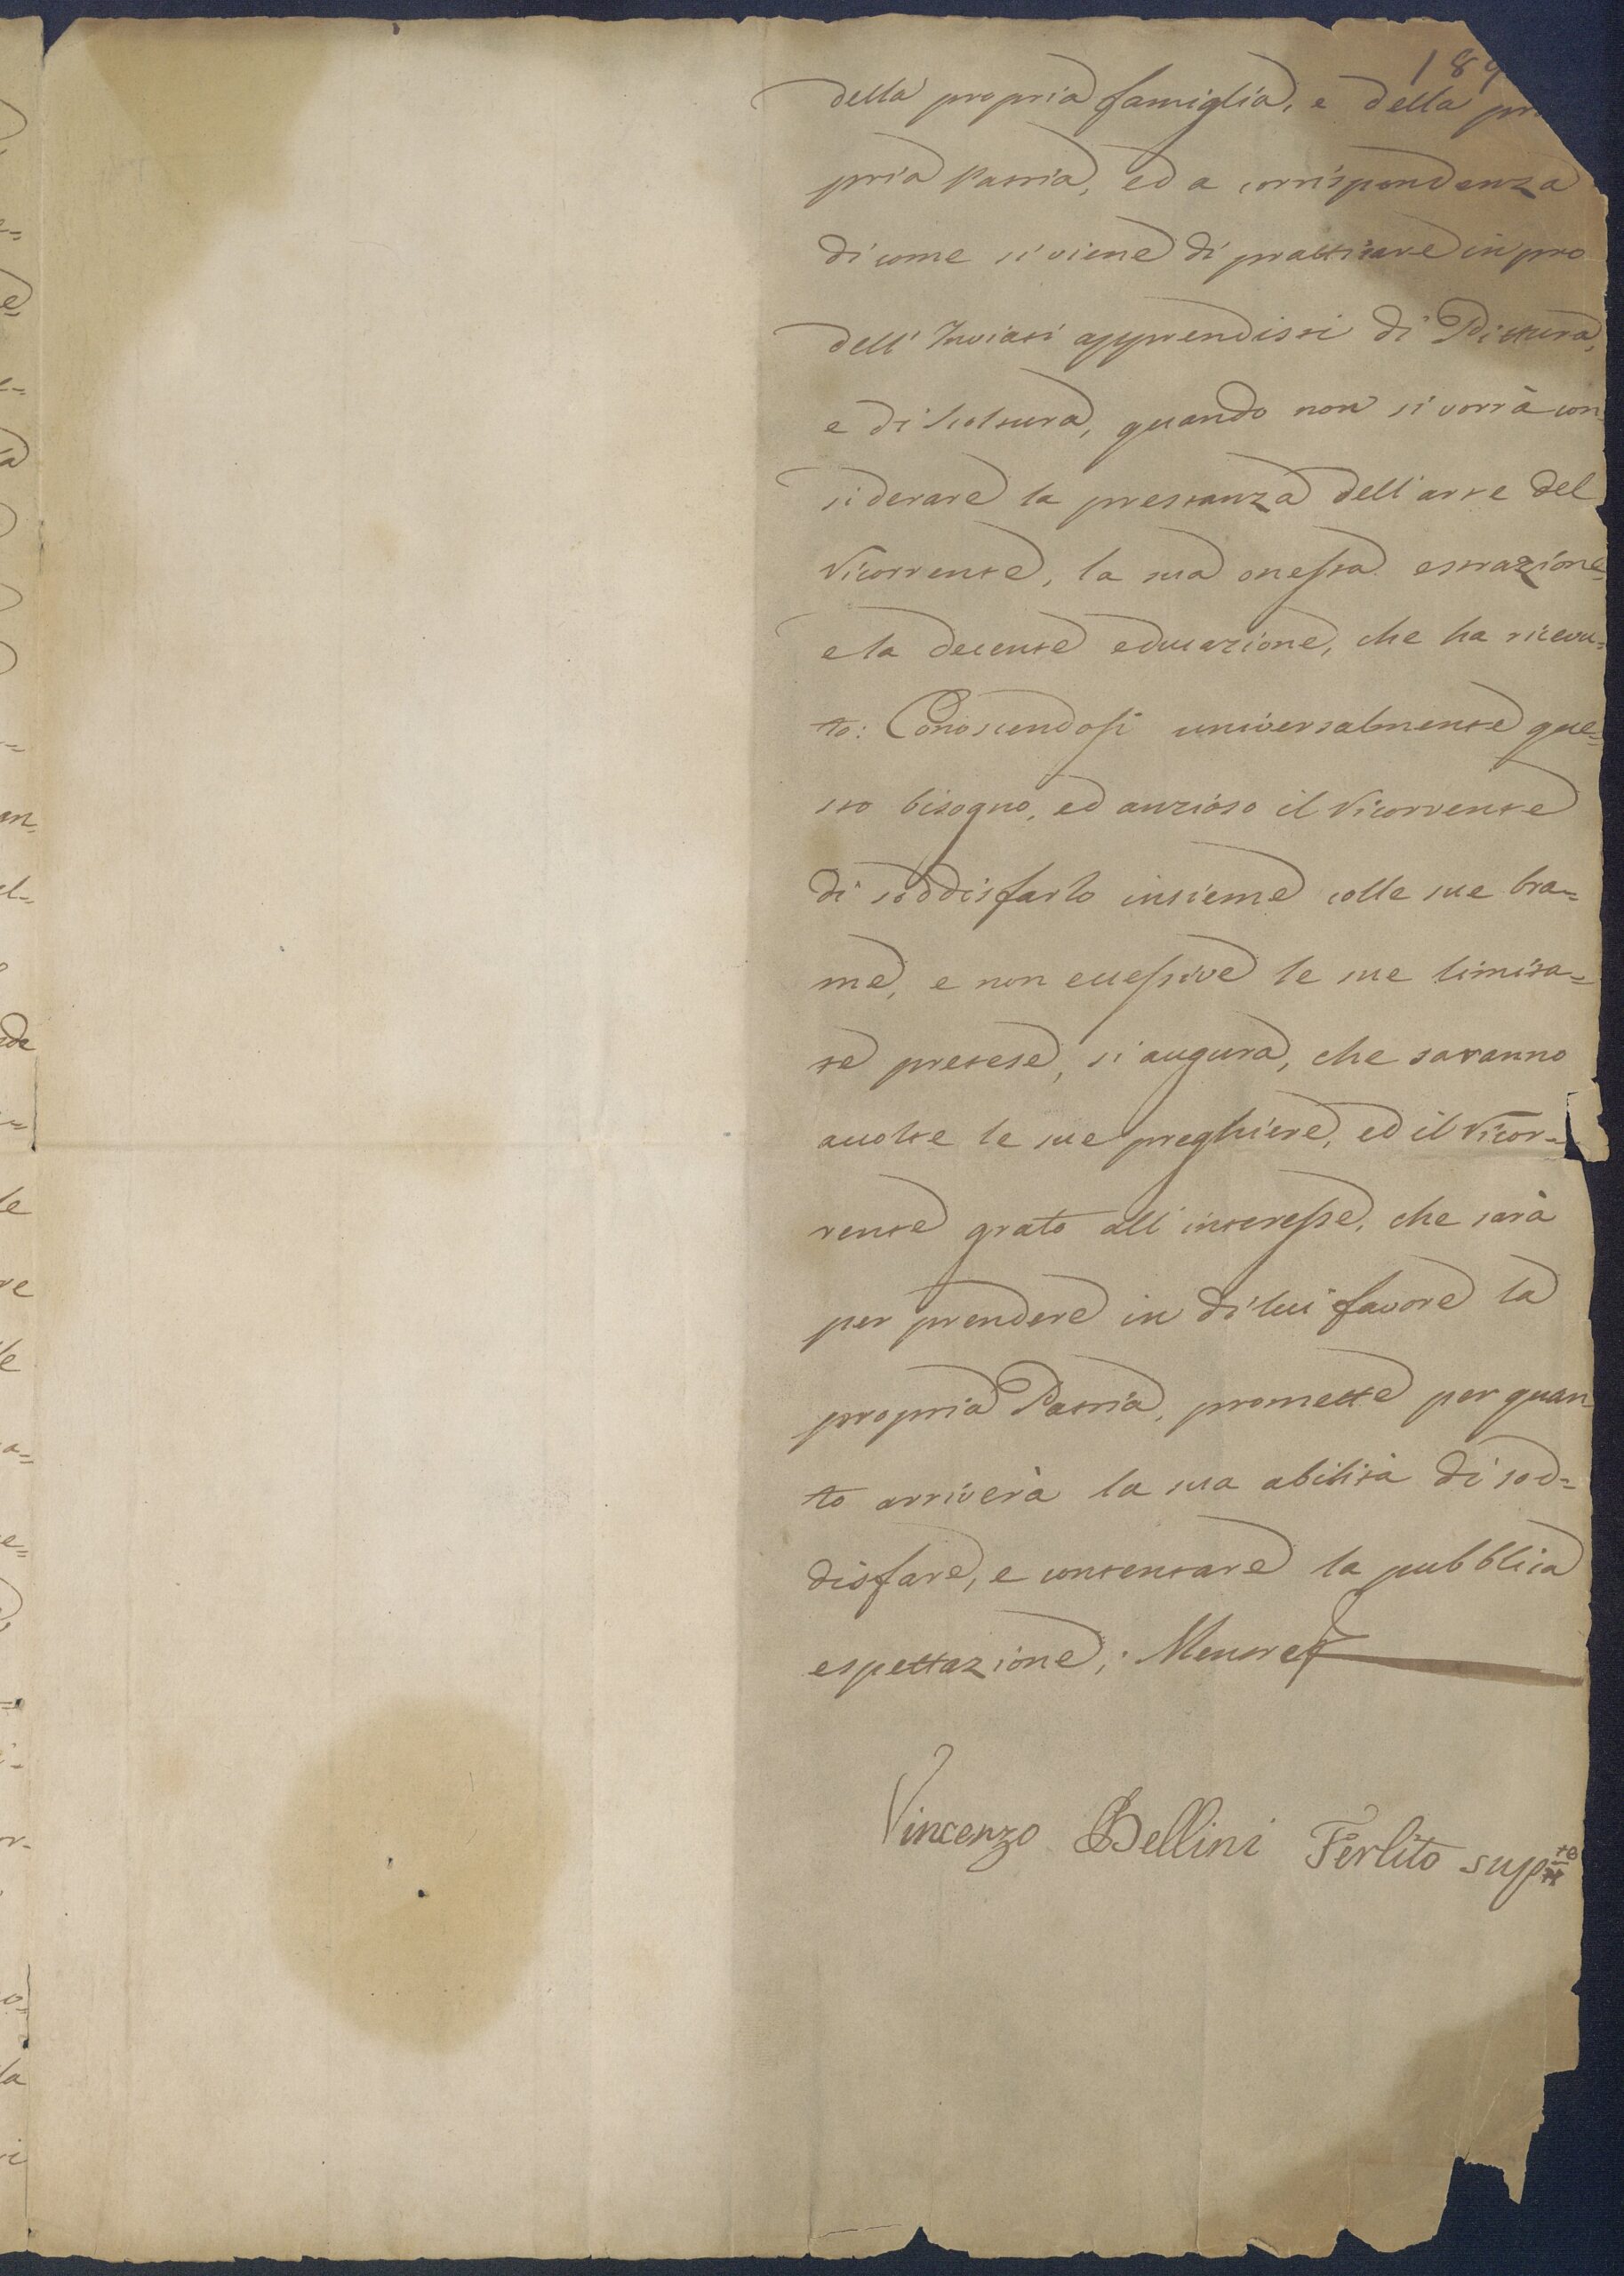 189
della propria famiglia, e della pro
pria Patria, ed a corrispondenza
di come si viene di pratticare in pro
dell' Inviati apprendisti di Pittura,
e di Scoltura, quando non si vorrà con
siderare la prestanza dell'arte del
Ricorrente, la sua onesta estrazione
e la decente educazione, che ha ricevu=
to: Conoscendosi universalmente que=
sto bisogno, ed anzioso il Ricorrente
di soddisfarlo insieme colle sue bra=
me, e non eccessive le sue limita=
te pretese, si augura, che saranno
accolte le sue preghiere, ed il Ricor=
rente grato all'interesse, che sarà
per prendere in di lui favore la
propria Patria, promette per quan
to arriverà la sua abilità di sod=
disfare, e contentare la pubblica
espettazione;
Vincenzo Bellini Ferlito supte